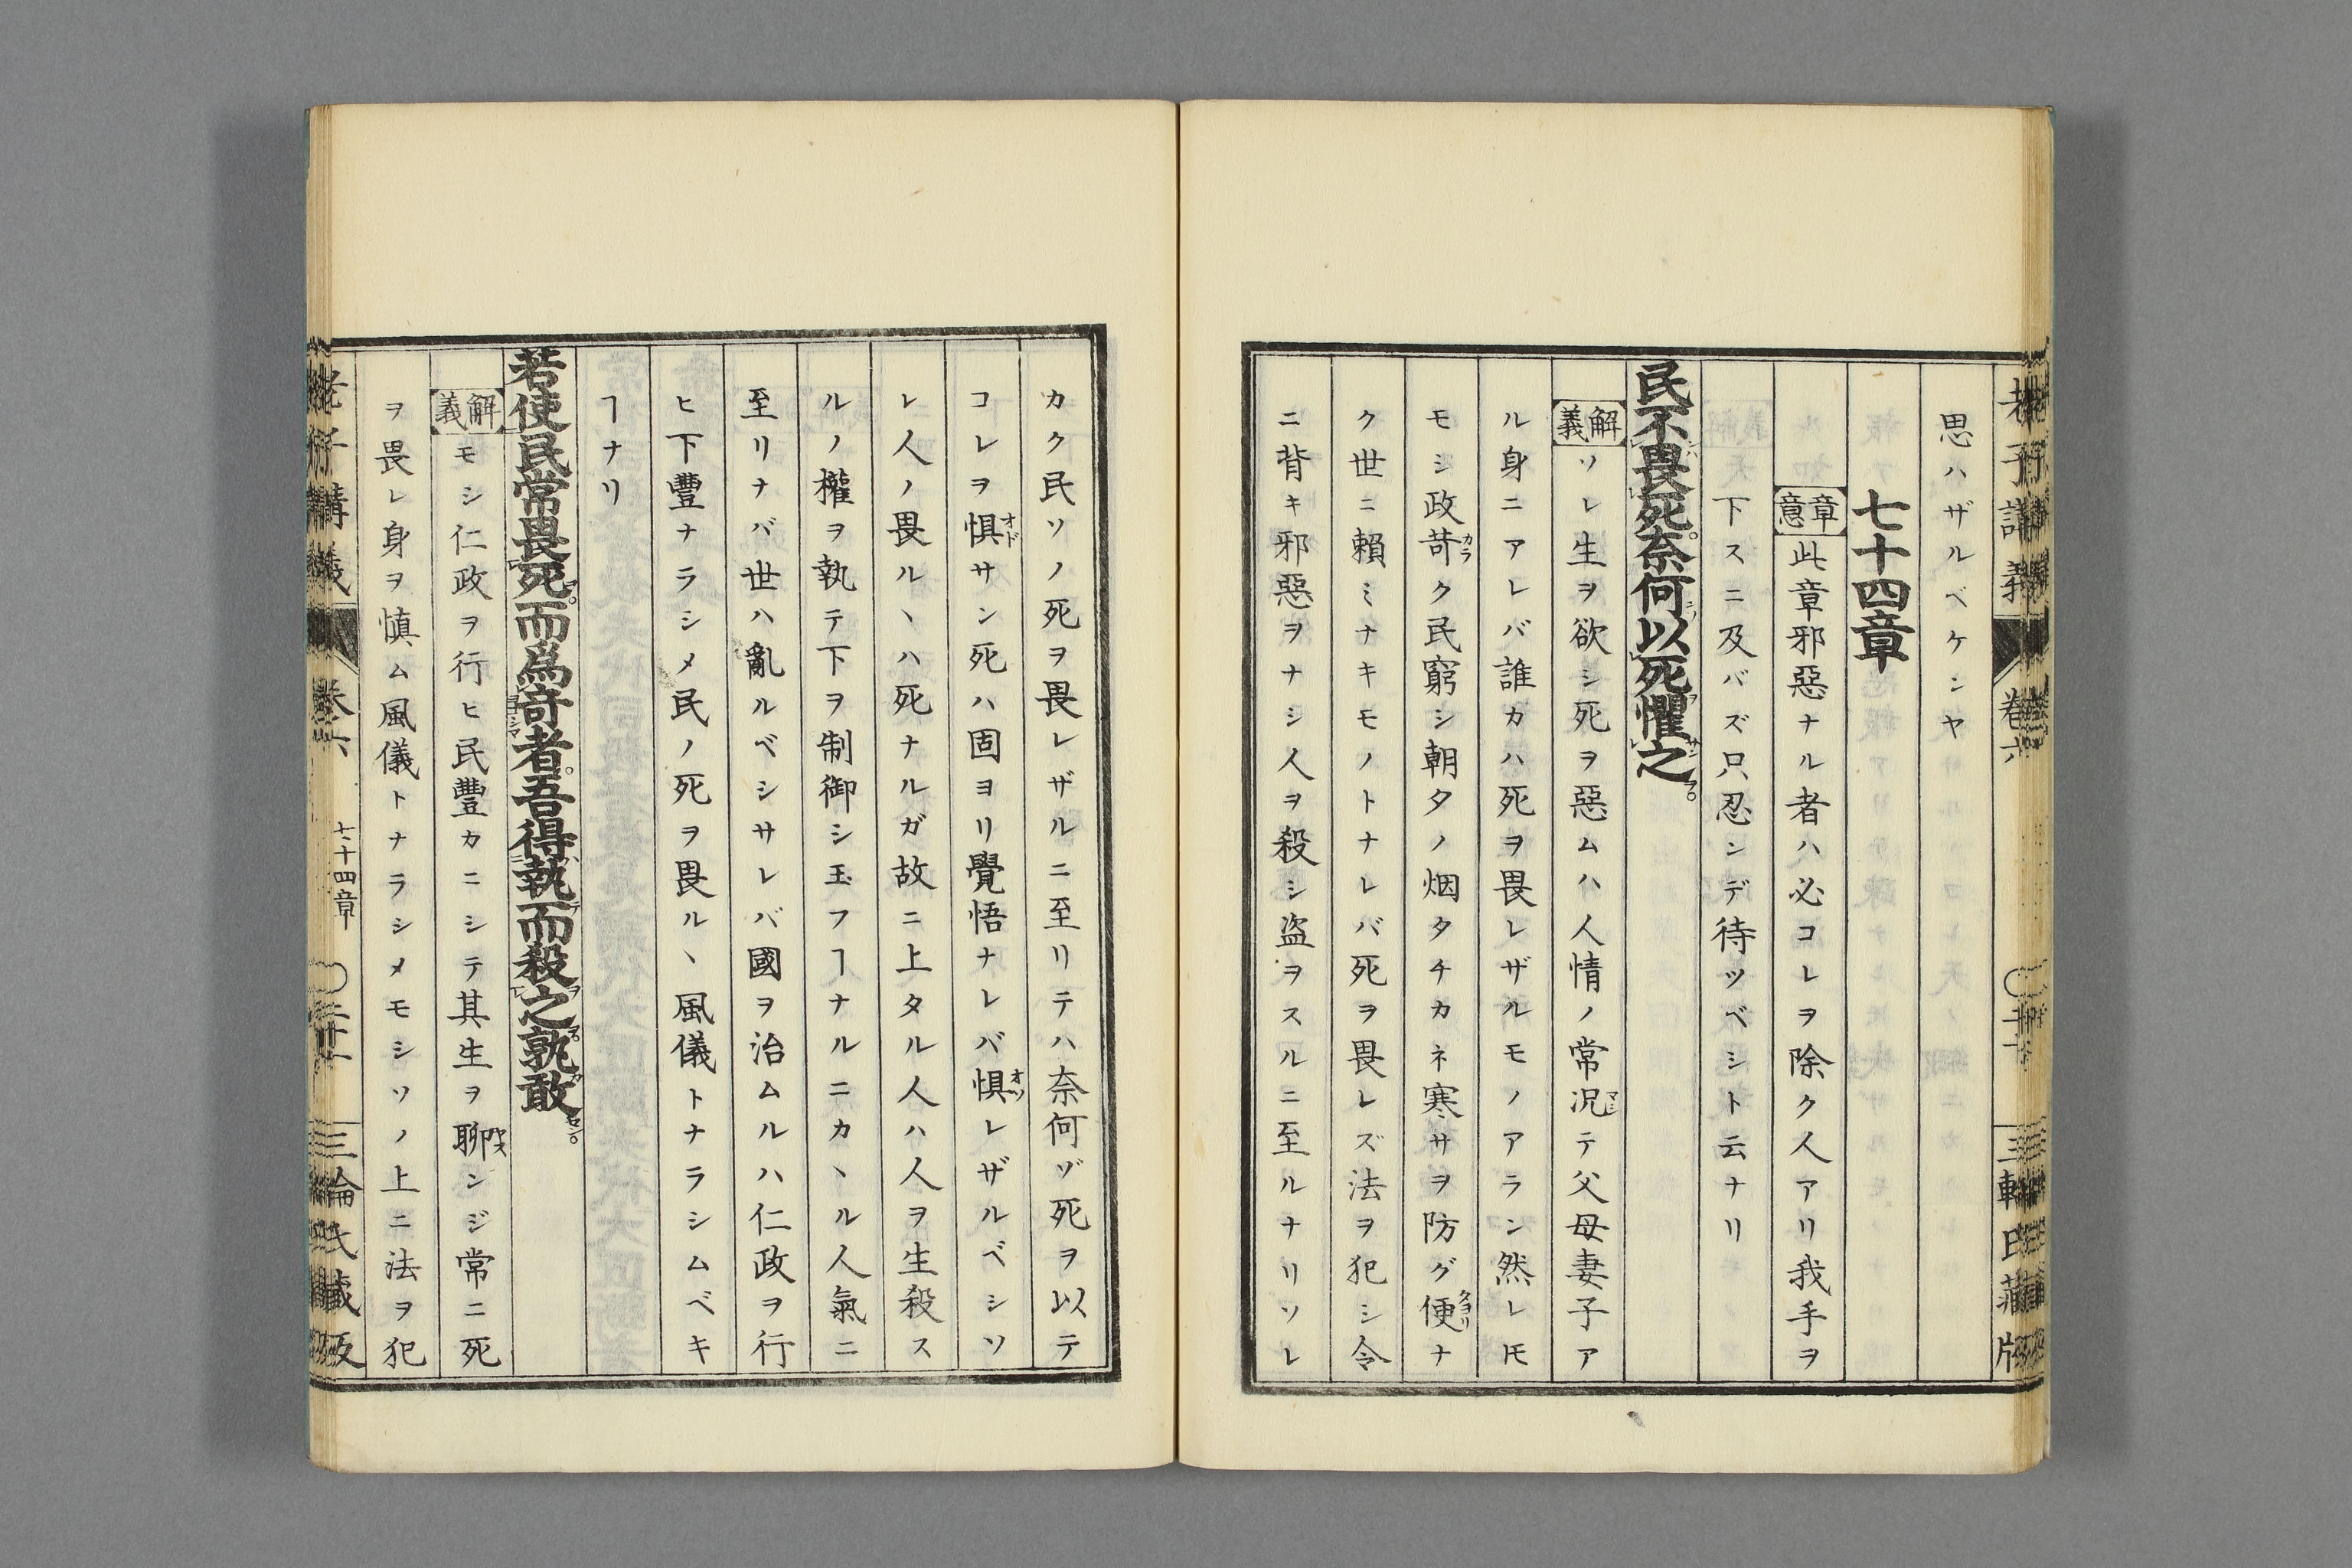 思ハザルベケンヤ
七十四章
章意 此章邪惡ナル者ハ必コレヲ除ク人アリ我手ヲ
下スニ及バズ只忍ンデ待ツベシト云ナリ
民不畏死。奈何以死懼之。
解義 ソレ生ヲ欲シ死ヲ惡ムハ人情ノ常況テ父母妻子ア
ル身ニアレバ誰カハ死ヲ畏レザルモノアラン然レ𪜈
モシ政苛ク民窮シ朝夕ノ烟タチカネ寒サヲ防グ便ナ
ク世ニ賴ミナキモノトナレバ死ヲ畏レズ法ヲ犯シ令
ニ背キ邪惡ヲナシ人ヲ殺シ盗ヲスルニ至ルナリソレ
カク民ソノ死ヲ畏レザルニ至リテハ奈何ゾ死ヲ以テ
コレヲ惧サン死ハ固ヨリ覺悟ナレバ惧レザルベシソ
レ人ノ畏ルヽハ死ナルガ故ニ上タル人ハ人ヲ生殺ス
ルノ權ヲ執テ下ヲ制御シ玉フヿナルニカヽル人氣ニ
至リナバ世ハ亂ルベシサレバ國ヲ治ムルハ仁政ヲ行
ヒ下豐ナラシメ民ノ死ヲ畏ルヽ風儀トナラシムベキ
ヿナリ
若使民常畏死。而爲奇者。吾得執而殺之。孰敢。
解義 モシ仁政ヲ行ヒ民豐カニシテ其生ヲ聊ンジ常ニ死
ヲ畏レ身ヲ慎ム風儀トナラシメモシソノ上ニ法ヲ犯
七十四章